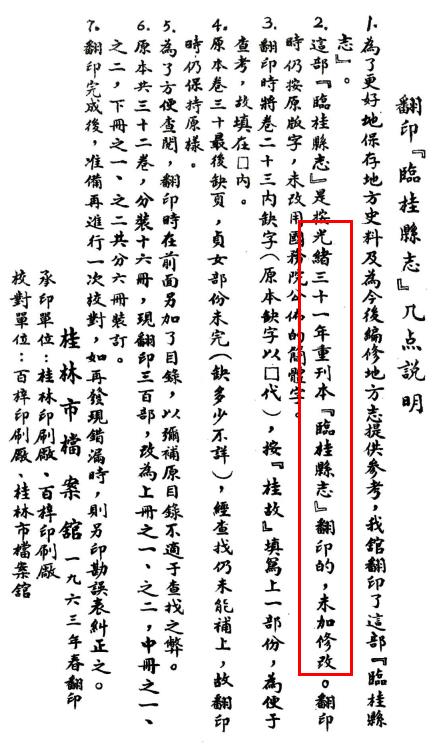 翻印『臨桂縣志』几点説明
1.為了更好地保存地方史料及為今後編修地方志提供參考，我舘翻印了這部『臨桂縣
志』。
2.這部『臨桂縣志』是按光緒三十一年重刊本『臨桂縣志』翻印的，未加修改。翻印
時仍按原版字，未改用國務院公佈的簡體字。
3.翻印時將卷二十三内缺字（原本缺字以囗代），按『桂故』填寫上一部份，為便于
查考，故填在囗内。
4.原本卷三十最後缺頁，貞女部份未完（缺多少不詳），經查找仍未能補上，故翻印
時仍保持原樣。
5.為了方便查閲，翻印時在前面另加了目錄，以彌補原目錄不適于查找之弊。
6.原本共三十二卷，分裝十六冊，現翻印三百部，改為上冊之一、之二，中冊之一、
之二，下冊之一、之二共分六冊裝訂。
7.翻印完成後，准備再進行一次校對，如再發現錯漏時，則另印勘誤表糾正之。
桂林市檔案舘 一九六三年春翻印
承印單位：桂林印刷廠、百梓印刷廠
校對單位：百梓印刷廠、桂林市檔案舘